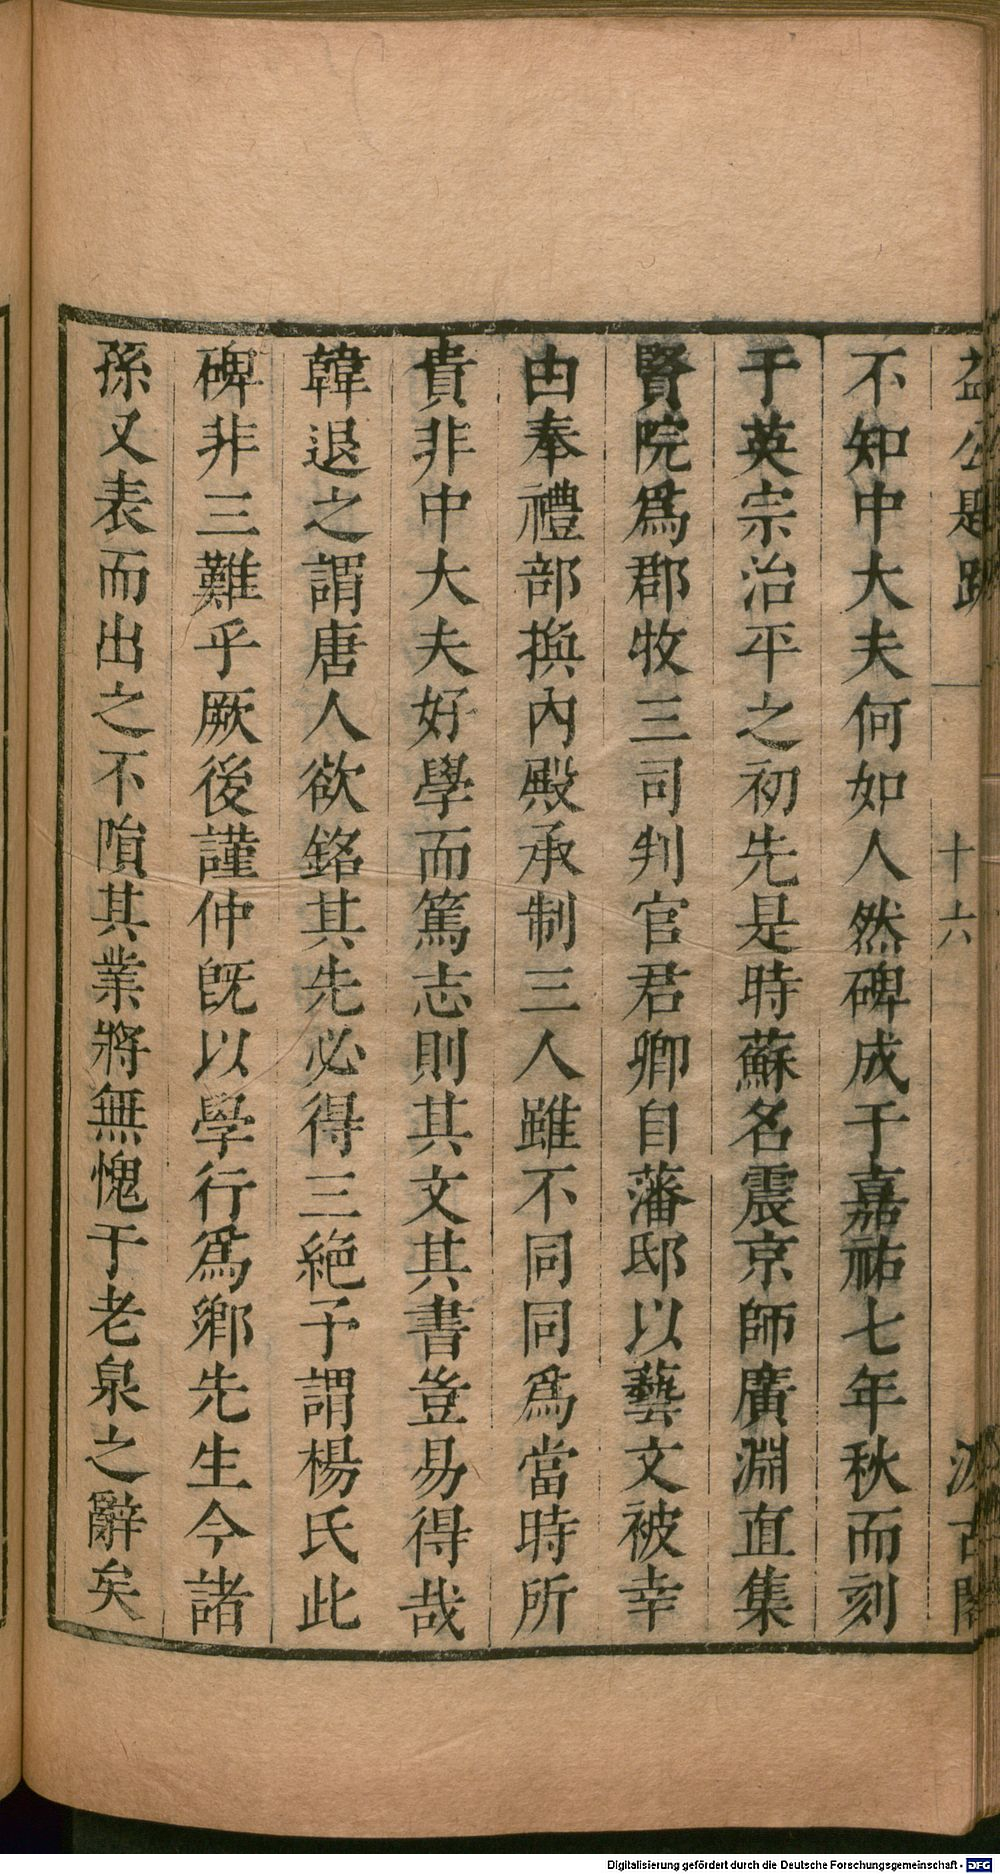 益公題跋 十六 汲古閣
不知中大夫何如人然碑成于嘉祐七年秋而刻
于英宗治平之初先是時蘇名震京師廣淵直集
賢院爲郡牧三司判官君卿自藩邸以藝文被幸
由奉禮部換內殿承制三人雖不同同爲當時所
貴非中大夫好學而篤志則其文其書豈易得哉
韓退之謂唐人欲銘其先必得三絶予謂楊氏此
碑非三難乎厥後謹仲旣以學行爲鄉先生今諸
孫又表而出之不隕其業將無愧于老泉之辭矣
Digitalisierung gefördert durch die Deutsche Forschungsgemeinschaft - DFG